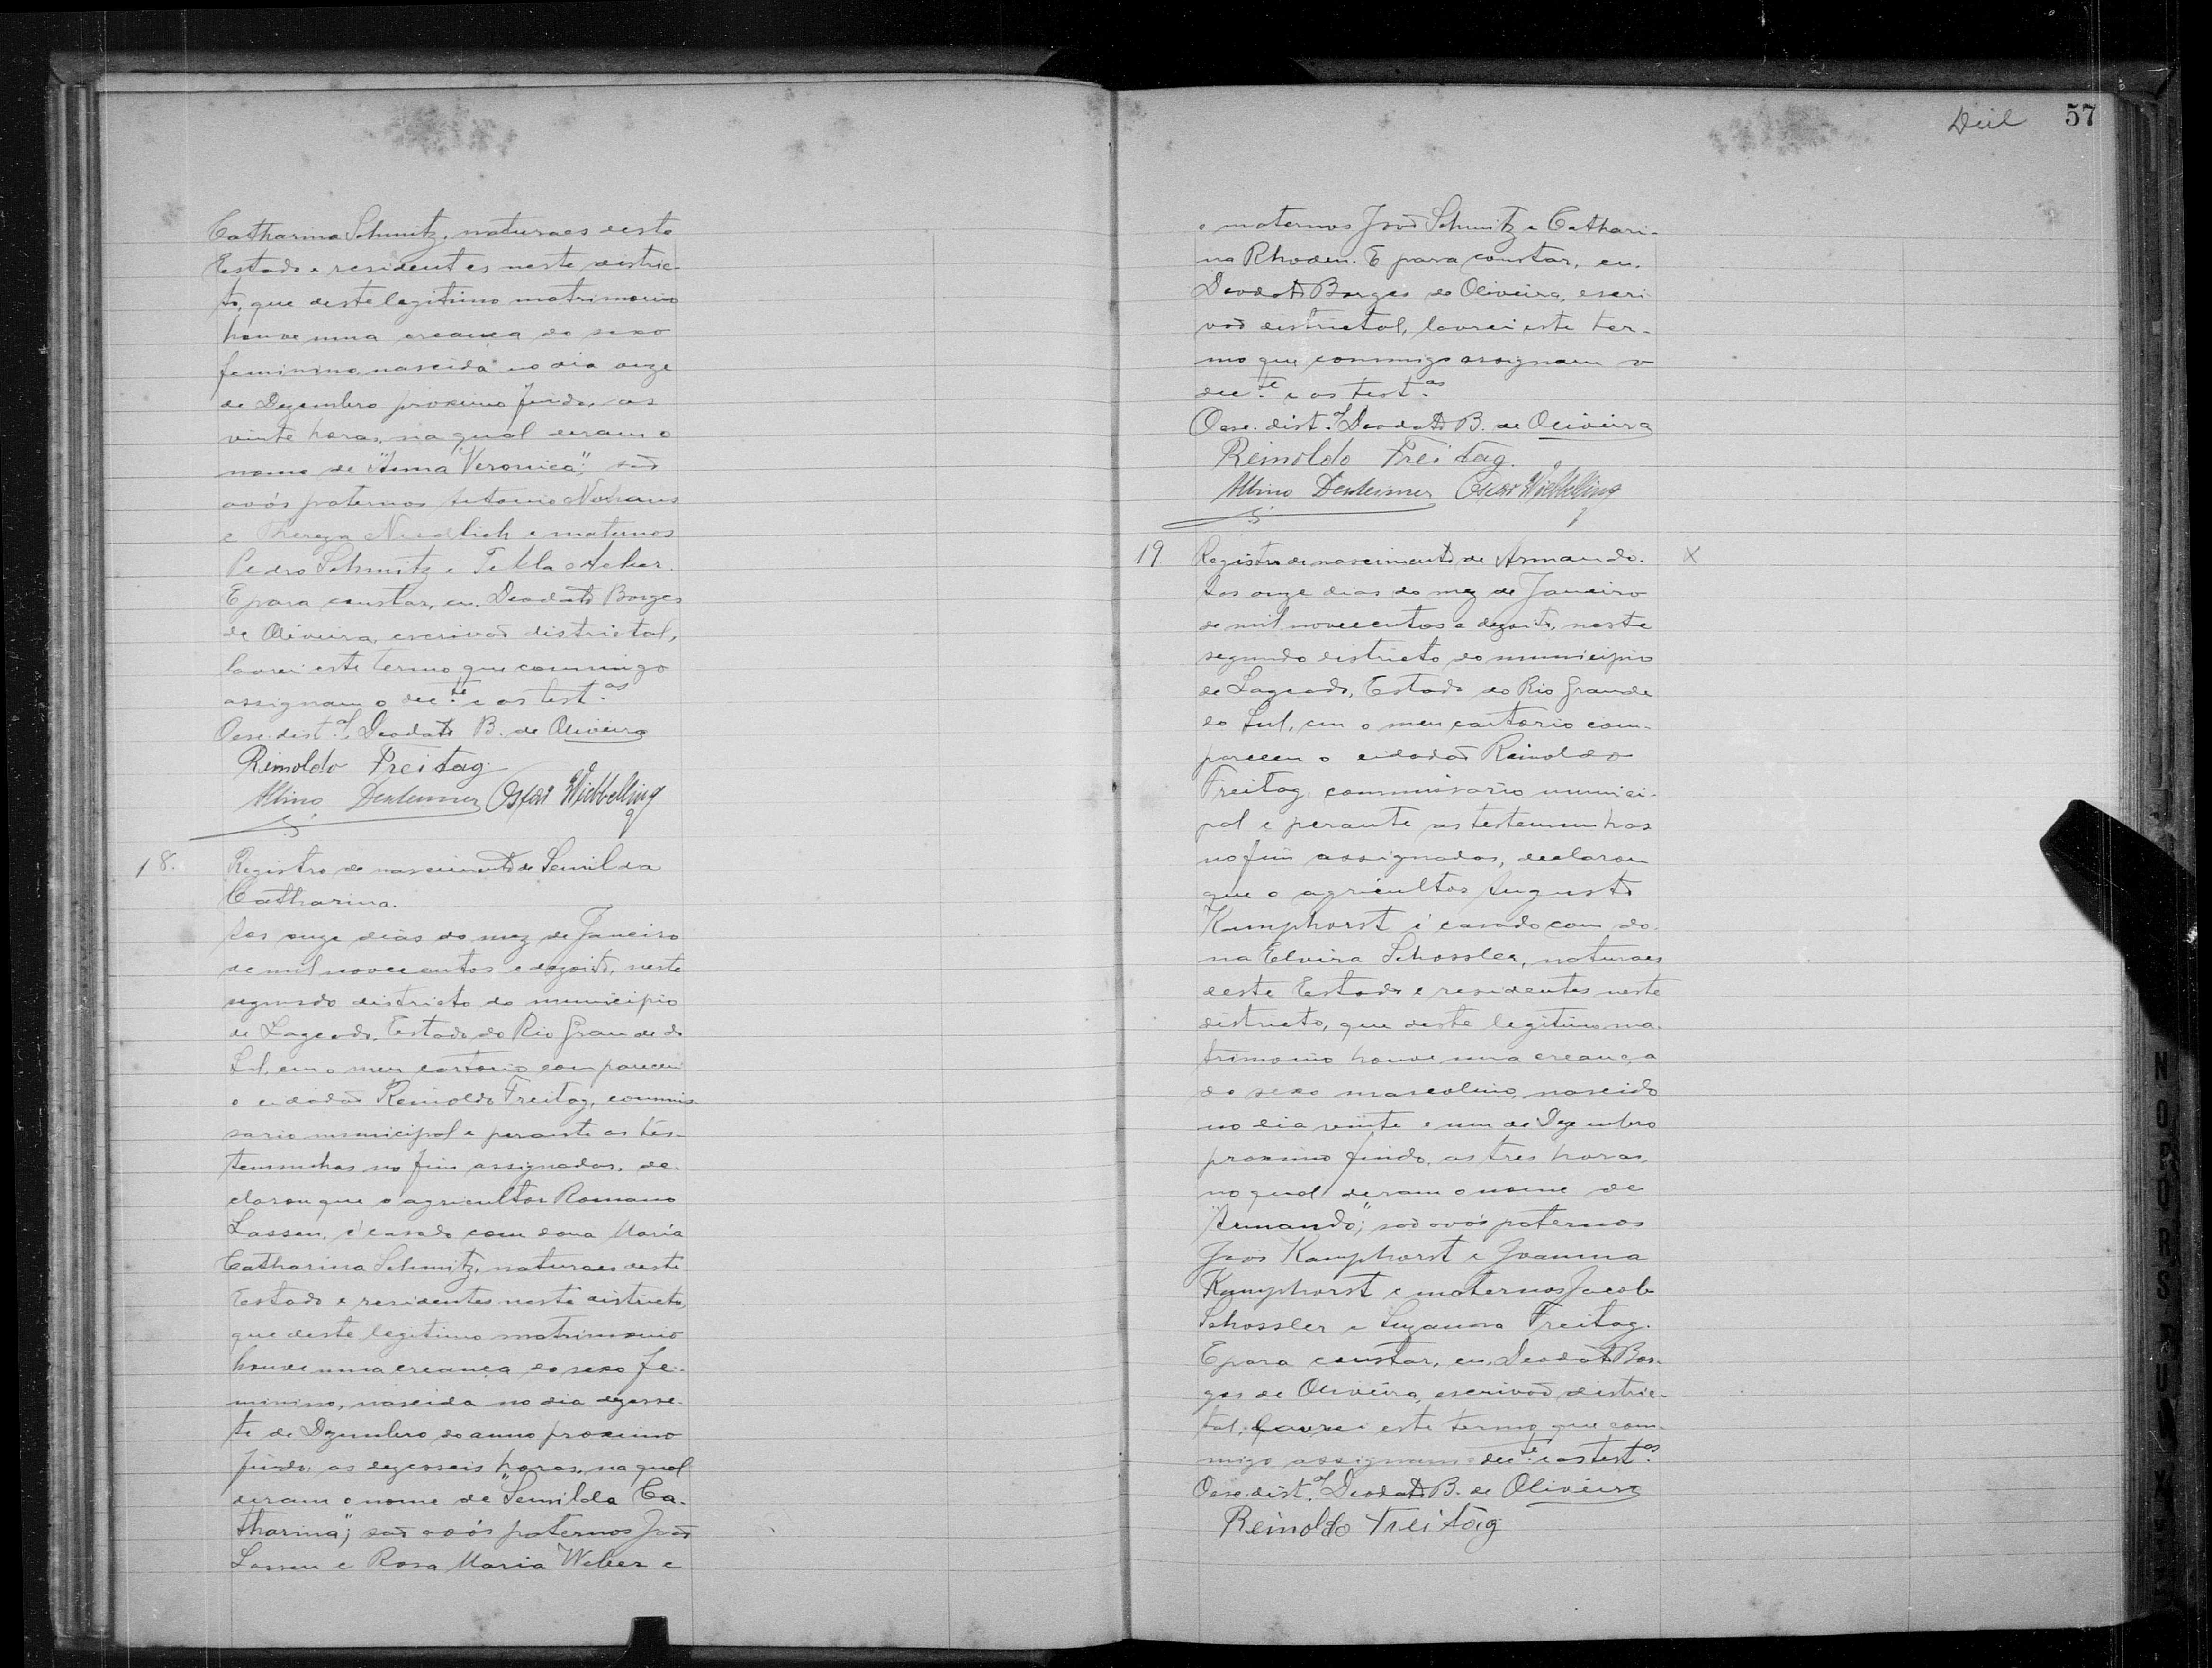 Deil 57
Catharina Schmitz, naturaes deste
Estado e residentes neste distric-
to, que deste legitimo matrimonio
houve uma creança do sexo
feminino, nascida no dia onze
de Dezembro proximo findo, as
vinte horas, na qual deram o
nome de "Anna Veronica"; são
avós paternos Antonio
e Thereza e maternos
Pedro Schmitz e Tekla
E para constar, eu, Deodato Borges
de Oliveira, escrivão districtal,
lavrei este termo que commigo
assignam o dec.te e as test.as
O esc. dist.al Deodato B. de Oliveira
Reinoldo Freitag
Albino Oscar Wiebbelling
18. Registro de nascimento de Semilda
Catharina.
Aos onze dias do mez de Janeiro
de mil novecentos e dezoito, neste
segundo districto do municipio
de Lageado, Estado do Rio Grande do
Sul, em o meu cartorio compareceu
o cidadão Reinoldo Freitag, commis-
sario municipal e perante as tes-
temunhas no fim assignadas, de-
clarou que o agricultor Romano
Lassen, é casado com dona Maria
Catharina Schmitz, naturaes deste
Estado e residentes neste districto,
que deste legitimo matrimonio
houve uma creança do sexo fe-
minino, nascida no dia dezese-
te de Dezembro do anno proximo
findo, as dezeseis horas, na qual
deram o nome de "Semilda Ca-
tharina"; são avós paternos João
Lassen e Rosa Maria Weber e
e maternos João Schmitz e Cathari-
na Rhoden. E para constar, eu,
Deodato Borges de Oliveira, escri-
vão districtal, lavrei este ter-
mo que commigo assignam o
dec.te e as test.as
O esc. dist.al Deodato B. de Oliveira
Reinoldo Freitag
Albino Oscar Wiebbelling
19. Registro de nascimento de Armando. X
Aos onze dias do mez de Janeiro
de mil novecentos e dezoito, neste
segundo districto do municipio
de Lageado, Estado do Rio Grande
do Sul, em o meu cartorio com-
pareceu o cidadão Reinoldo
Freitag, commissario munici-
pal e perante as testemunhas
no fim assignadas, declarou
que o agricultor Augusto
Kamphorst é casado com do-
na Elvira Schossler, naturaes
deste Estado e residentes neste
districto, que deste legitimo ma-
trimonio houve uma creança
do sexo masculino, nascido
no dia vinte e um de Dezembro
proximo findo, as tres horas,
no qual deram o nome de
"Armando"; são avós paternos
João Kamphorst e Joanna
Kamphorst e maternos Jacob
Schossler e Suzanna Freitag.
E para constar, eu, Deodato Bor-
ges de Oliveira, escrivão distric-
tal, lavrei este termo que com-
migo assignam o dec.te e as test.as
O esc. dist.al Deodato B. de Oliveira
Reinoldo Freitag